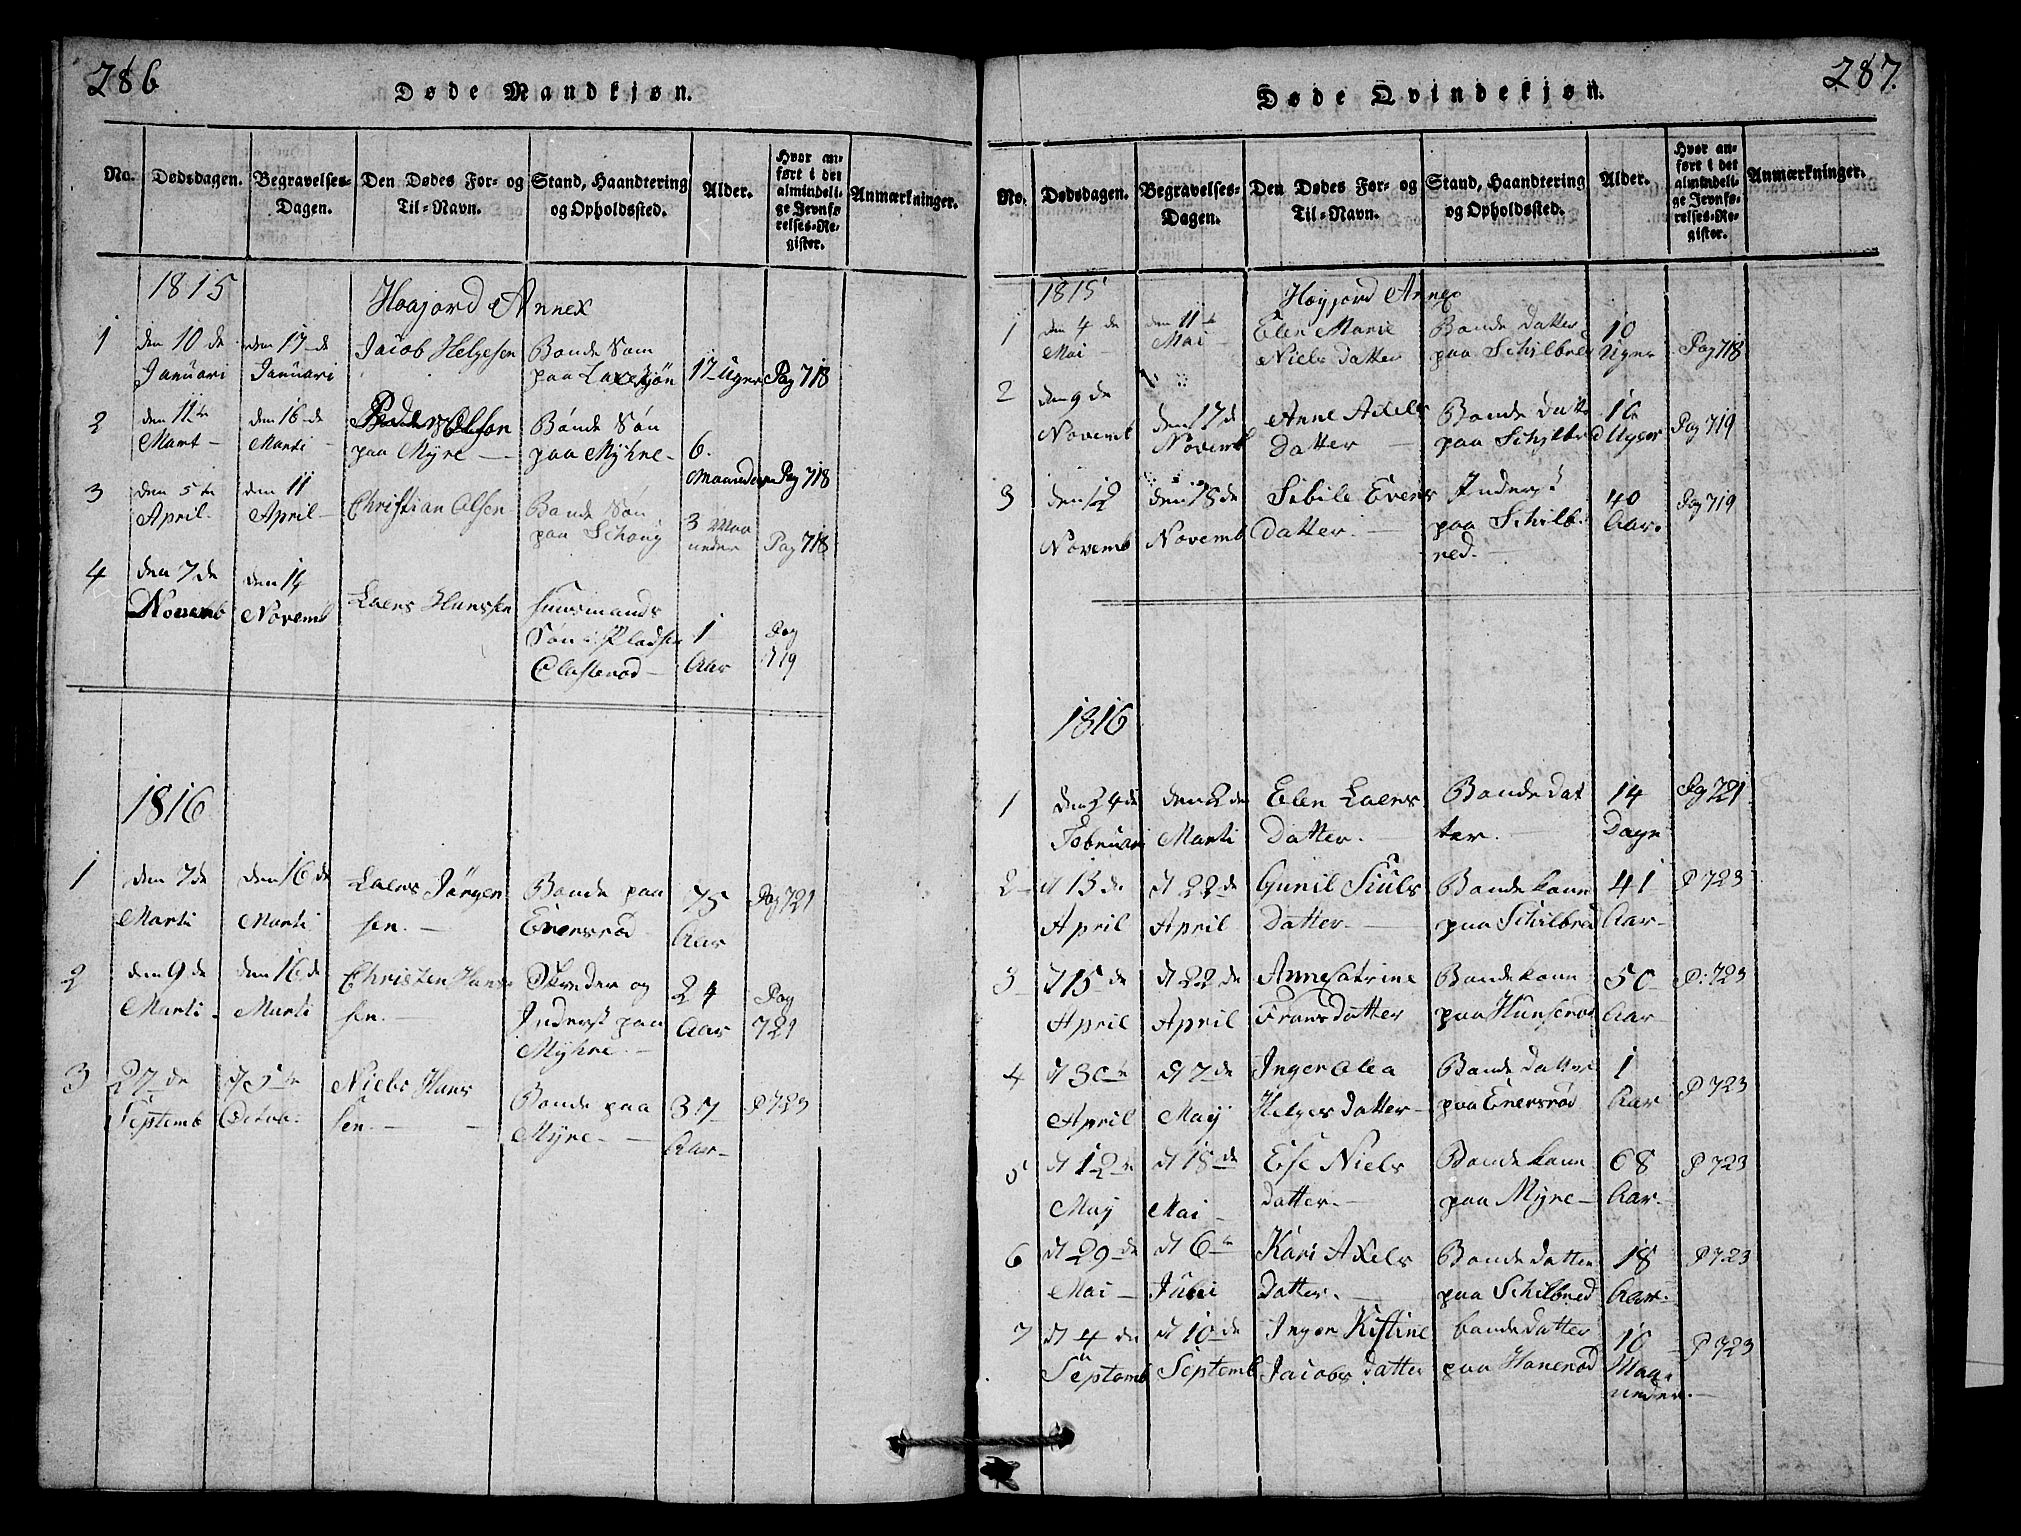 286
Døde Mandkjøn.
No.
Dødsdagen.
Begravelses-
Dagen.
Den Dødes For- og
Til-Navn.
Stand, Haandtering
og Opholdssted.
Alder.
Hvor an-
ført i det
almindeli-
ge Jevnfø-
relses-Re-
gister.
Anmærkninger.
1815
Høajord Annex
1
den 10 de
Januari
den 17 de
Januari
Jacob Helgesen
Bonde Søn
paa
17 Uger
Pag 718
2
den 11te
Mart
den 16 de
Marti
Peder Olson
paa Myre
Bonde Søn
paa Myhre
6.
Maaneder
Pag 718
3
den 5te
April
den 11
April
Christian Olsen
Bonde Søn
paa
3 Maa
neder
Pag 718
4
den 7 de
Novemb
den 14
Novemb
Laers Hanssen
Huusmands
Søn Pladsen
Clasterød
1
Aar
Pag
719
1816
1
den 7 de
Marti
den 16 de
Marti
Laers Jørgen
sen.
Bonde paa
Enersrød
75
Aar
Pag 721
2
den 9 de
Marti
den 16 de
Marti
Christen Hans
sen.
Skreder og
Inderst paa
Myhre
24
Aar
Pag
721
3
27 de
Septemb
d 5te
Octor.
Niels Hans
sen.
Bonde paa
Myre
37
Aar
P 723
287.
Døde Qvindekjøn.
No.
Dødsdagen.
Begravelses-
Dagen.
Den Dødes For- og
Til-Navn.
Stand, Haandtering
og Opholdssted.
Alder.
Hvor an-
ført i det
almindeli-
ge Jevnfø-
relses-Re-
gister.
Anmærkninger.
1815
Høyjord Annex
1
den 4 de
Mai
den 11te
Mai
Elen Marie
Niels datter
Bonde datter
paa Schilbred
10
Uger
Pag 718
2
den 9 de
Novemb
den 17 de
Novemb
Anne Axels
datter
Bonde datter
paa Schilbred
16
Uger
Pag 719
3
den 12
Novemb
den 18 de
Novemb
Sibile Evens
datter.
Inderst
paa Schilb-
red.
40
Aar.
Pag 719
1816
1
den 24 de
Februari
den 2 de
Marti
Elen Laers
datter.
Bonde dat
ter.
14
Dage
Pg 721
2
d 13 de
April
d 22 de
April
Gunil Siuls
datter.
Bonde kone
paa Schilbred
41
Aar
P 723
3
d 15 de
April
d 22 de
April
Anne Catrine
Frans datter
Bonde kone
paa Hunserød
50
Aar
P: 723
4
d 30te
April
d 7 de
May
Inger Olea
Helges datter
Bonde datter
paa Enersrød
1
Aar
P 723
5
d 12te
May
d 18 de
Mai
Else Niels
datter.
Bonde kone
paa Myre
68
Aar
P 723
6
d 29 de
Mai
d 6te
Juni
Kari Axels
datter.
Bonde datter
paa Schilbred
18
Aar
P 723
7
d 4 de
Septemb
d 10 de
Septemb
Inger Kistine
Jacobs datter
bonde datter
paa Hanerød
10
Maa-
neder.
P 723